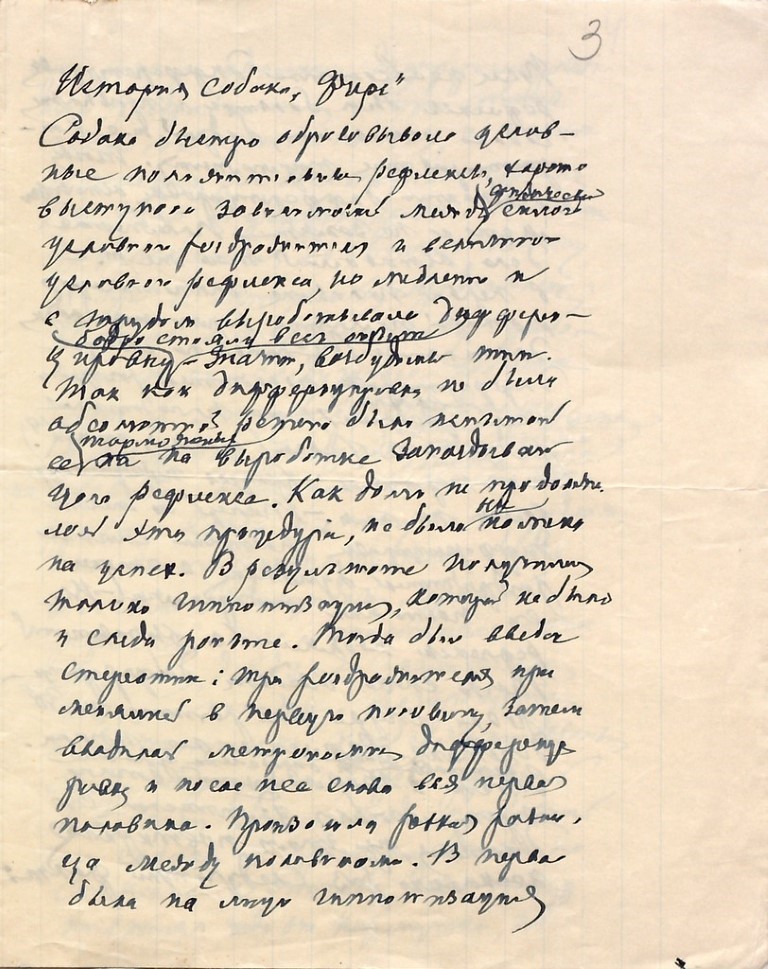 3
История собаки „Фирс"
Собака быстро образовывала услов-
ные положительные рефлексы, хорошо
выступала зависимость между силою
физической
условного раздражителя и величиною
условного рефлекса, но медленно и
с трудом вырабатывала дифферен-
бодро стояли весь опыт
цировку – значит, возбудимый тип.
Так как дифференцировка не была
абсолютной, решено было испытать
торможение
ее на выработке запаздываю
щего рефлекса. Как долго не продолжа
лась эта процедура, не было
на успех. В результате получилась
только гипнотизация, которой не было
и следа раньше. Тогда был введен
стереотип: три раздражителя при
менялись в первую половину, затем
вводилась метрономная дифференци
ровка и после нее снова вся первая
половина. Произошла резкая разни-
ца между половинами. В первой
была на лицо гипнотизация